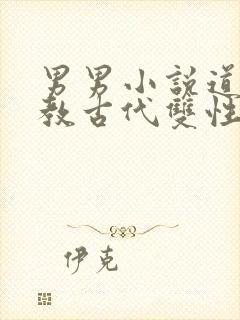 男男小說道
教古代雙性
伊克